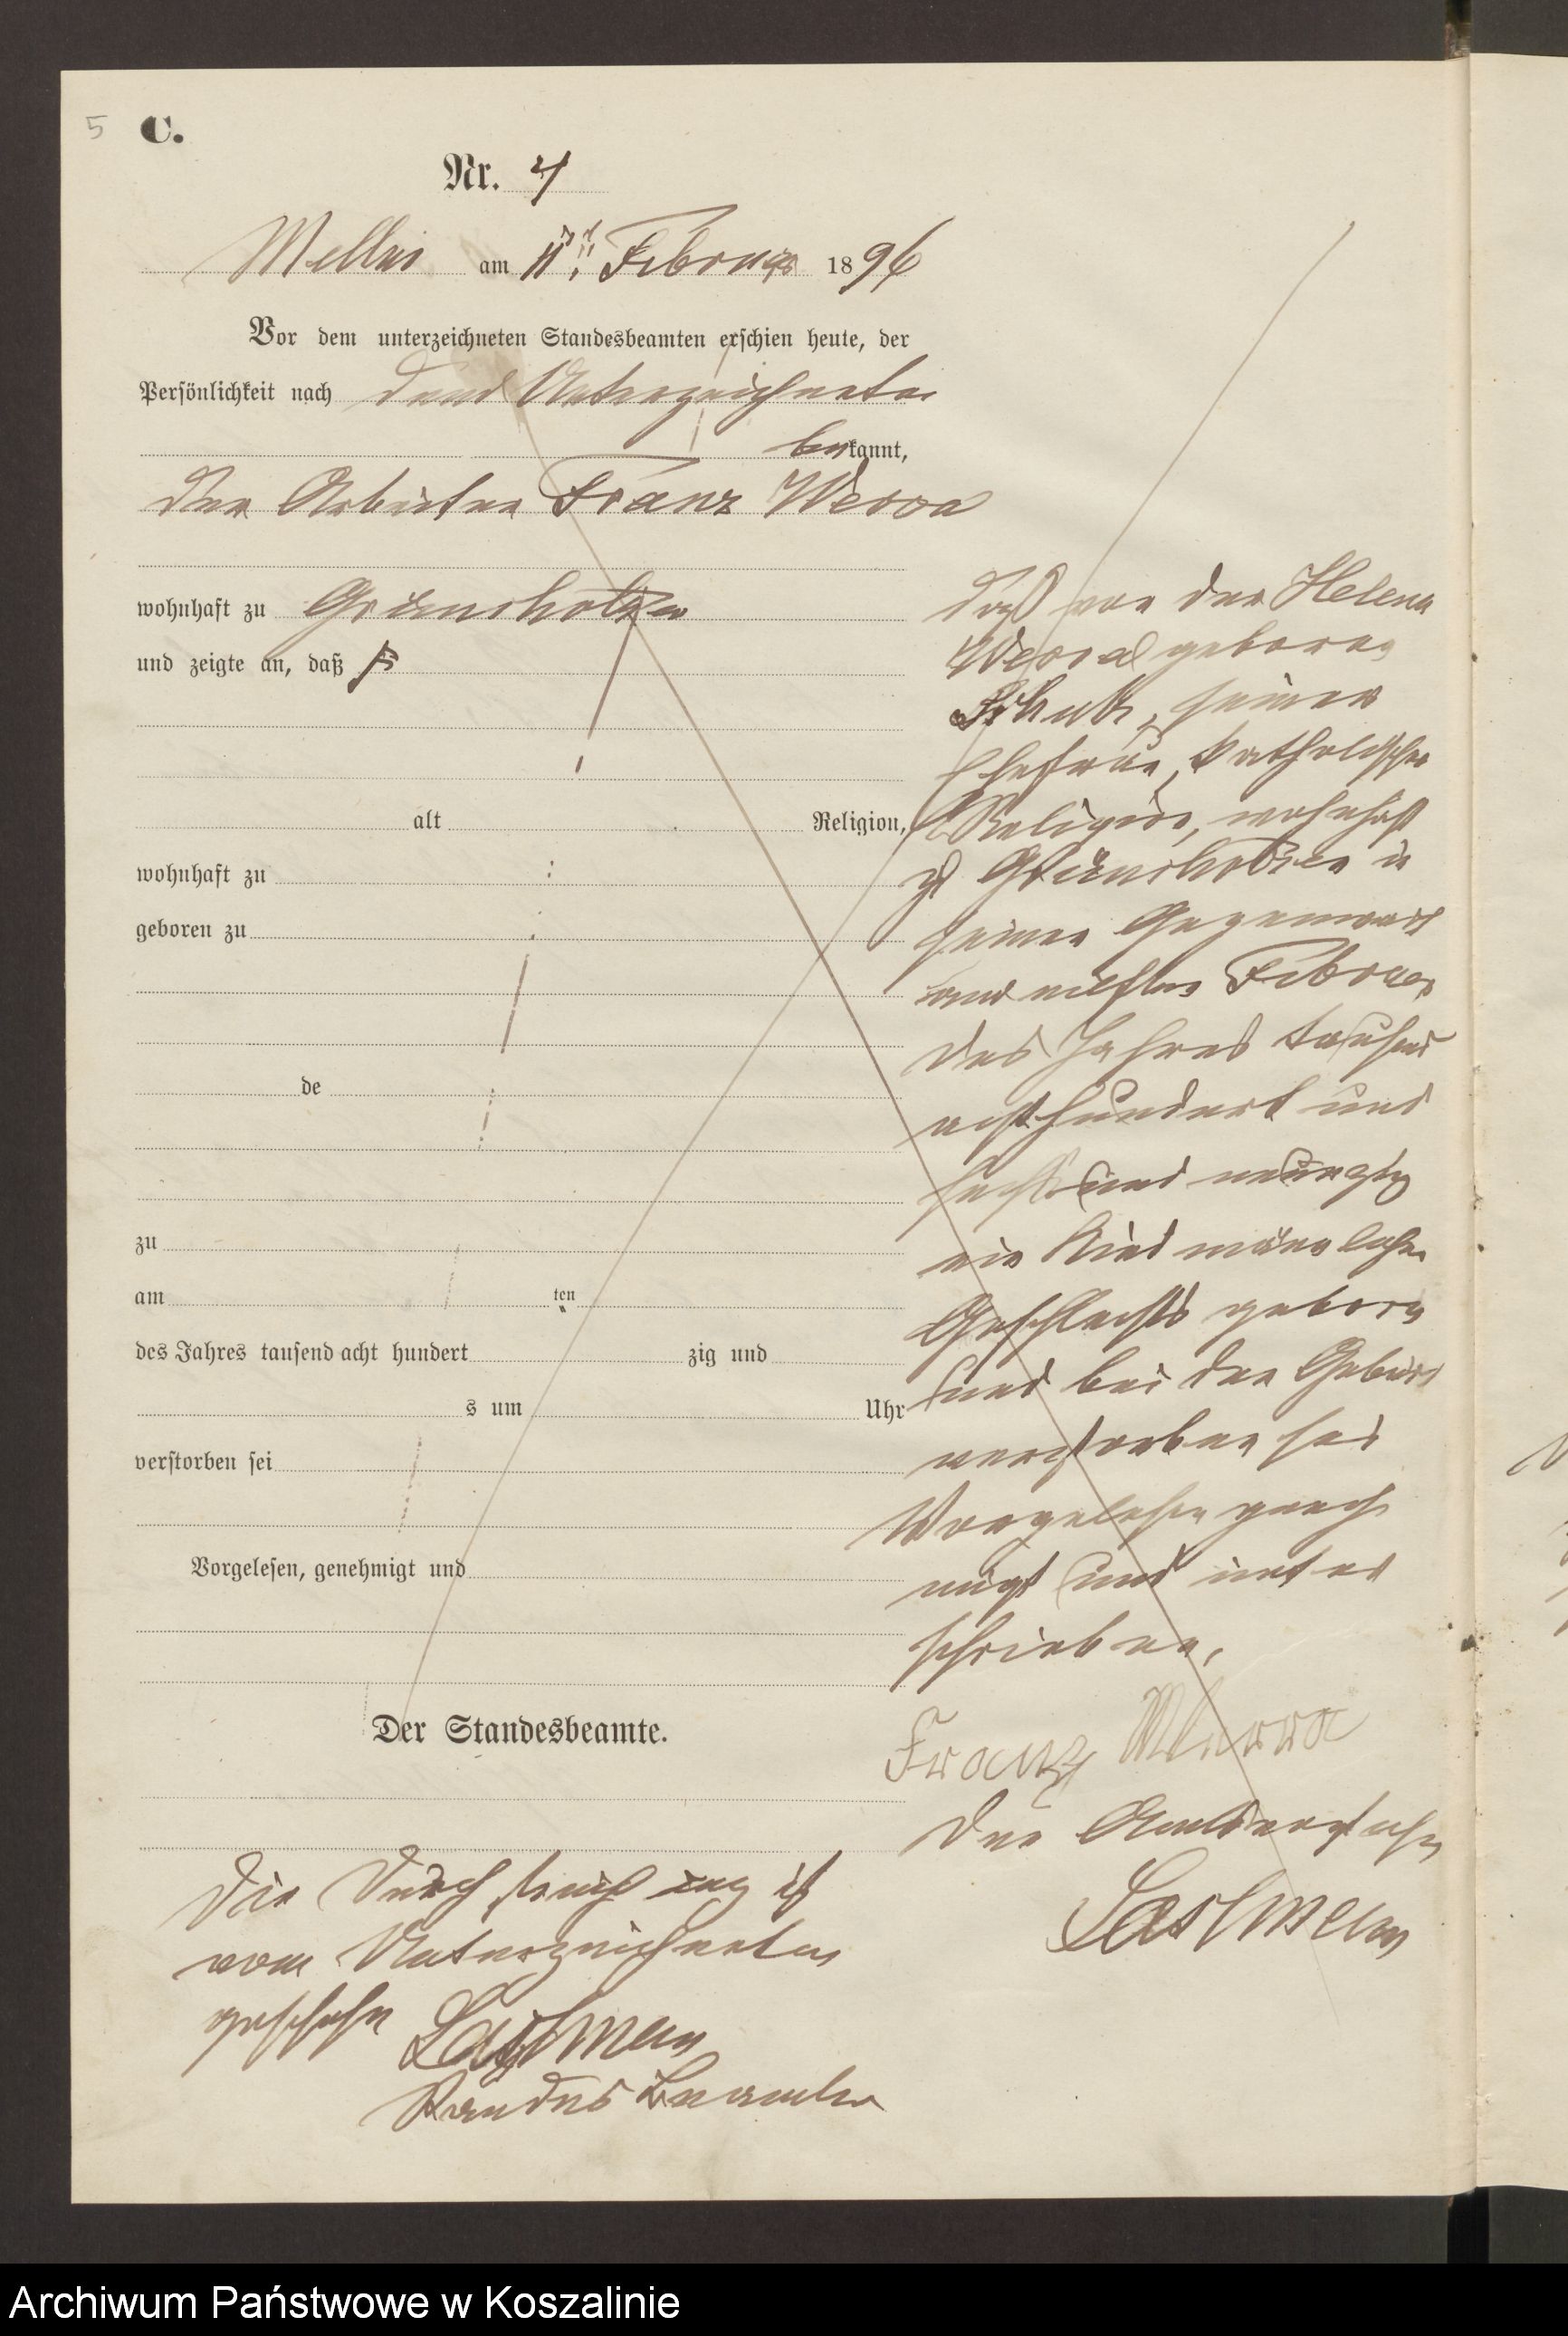 5 C.
Nr. 4
am 11ten Februar 1896
Vor dem unterzeichneten Standesbeamten erschien heute, der
Persönlichkeit nach dem Unterzeichneten
bekannt,
der Arbeiter Franz Werra
wohnhaft zu Grünsholtz
und zeigte an, daß
alt Religion,
wohnhaft zu
geboren zu
de
zu
am ten
des Jahres tausend acht hundert zig und
s um Uhr
verstorben sei
Vorgelesen, genehmigt und
Der Standesbeamte.
daß von der Helena
Werra geborene
seiner
Ehefrau, katholischer
Religion, wohnhaft
zu in
seiner Gegenwart
am elften Februar
des Jahres tausend
achthundert und
sechs und neunzig
ein Kind männlichen
Geschlechts geboren
und bei der Geburt
verstorben sei
Vorgelesen geneh
migt und unter
schrieben.
Franz Werra
Der
Die Durchstreichung ist
vom Unterzeichneten
geschehen
Standes Beamter
Archiwum Państwowe w Koszalinie